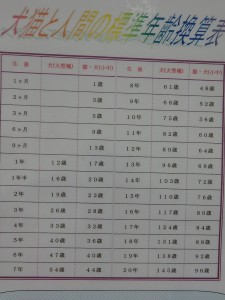 犬猫と人間の標準年齢換算表
生後 犬(大型種) 猫・犬(小中) 生後 犬(大型種) 猫・犬(小中)
1ヶ月 1歳 8年 61歳 48歳
2ヶ月 3歳 9年 68歳 52歳
3ヶ月 5歳 10年 75歳 56歳
6ヶ月 9歳 11年 82歳 60歳
9ヶ月 13歳 12年 89歳 64歳
1年 12歳 17歳 13年 96歳 68歳
1年半 16歳 20歳 14年 103歳 72歳
2年 19歳 23歳 15年 110歳 76歳
3年 26歳 28歳 16年 117歳 80歳
4年 33歳 32歳 17年 124歳 84歳
5年 40歳 36歳 18年 131歳 88歳
6年 47歳 40歳 19年 138歳 92歳
7年 54歳 44歳 20年 145歳 96歳